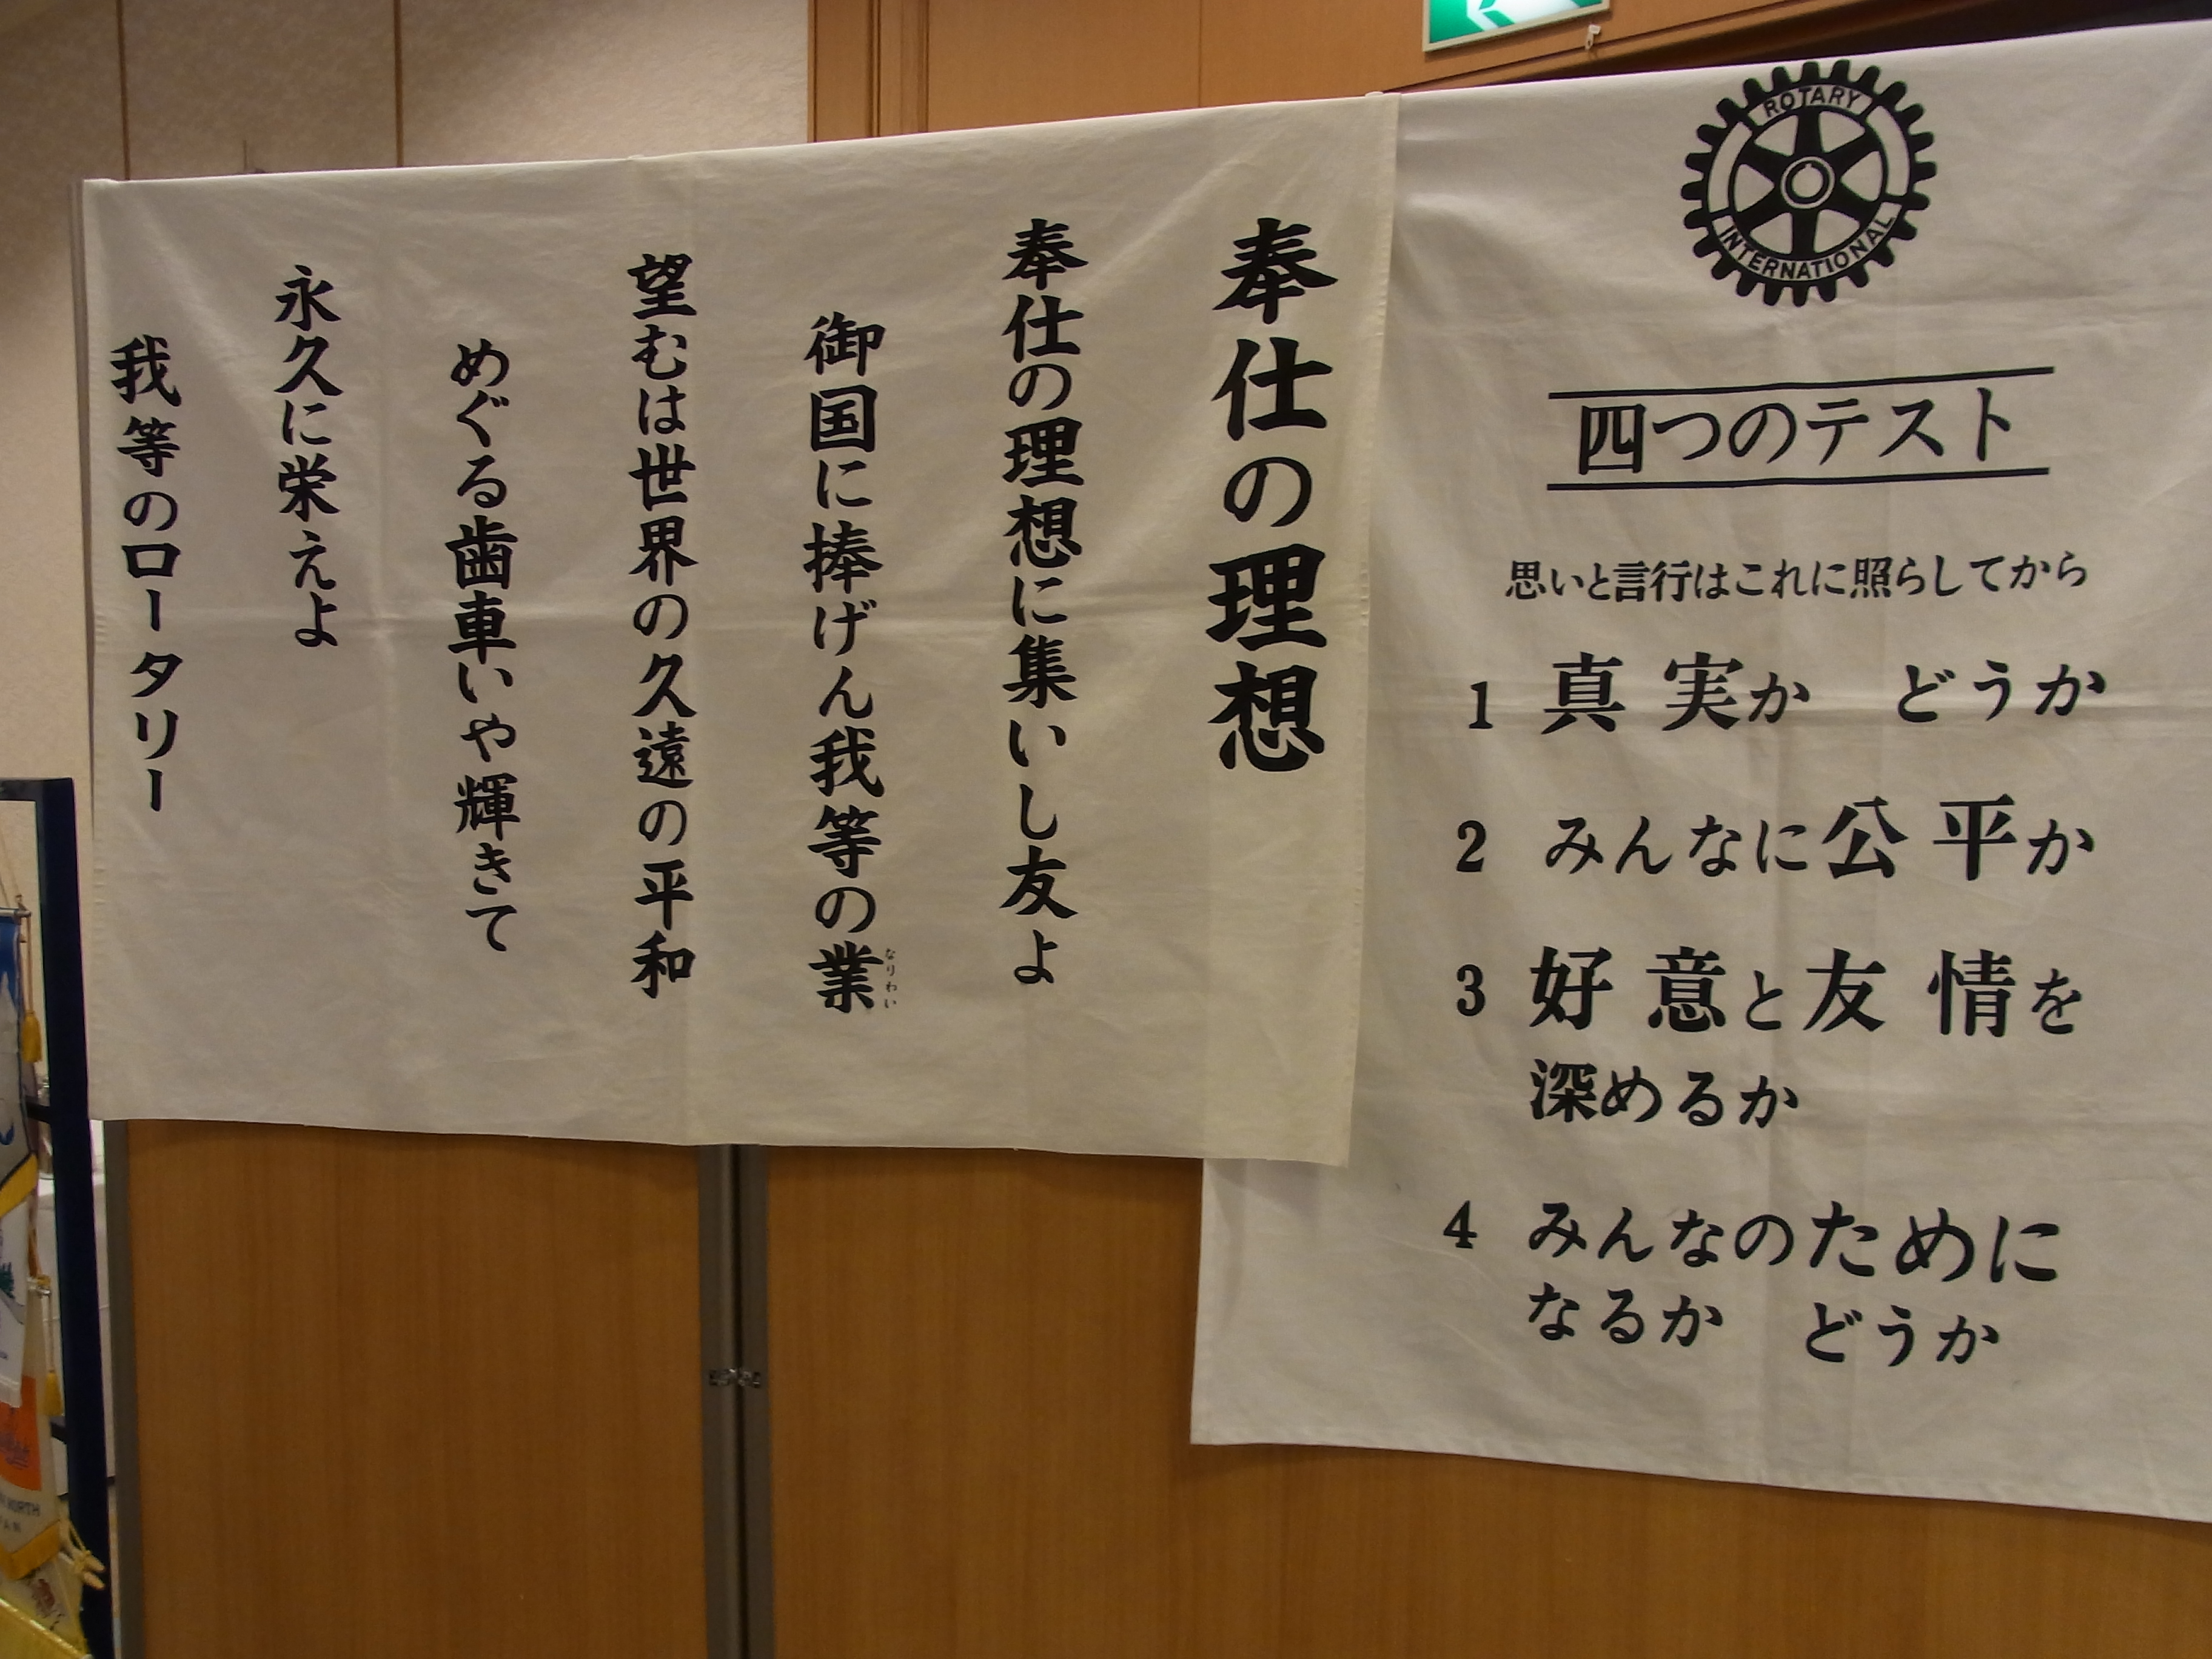 ROTARY
INTERNATIONAL
四つのテスト
思いと言行はこれに照らしてから
1 真実か どうか
2 みんなに公平か
3 好意と友情を
深めるか
4 みんなのために
なるか どうか
奉仕の理想
奉仕の理想に集いし友よ
御国に捧げん我等の業
なりわい
望むは世界の久遠の平和
めぐる歯車いや輝きて
永久に栄えよ
我等のロータリー
NORTH